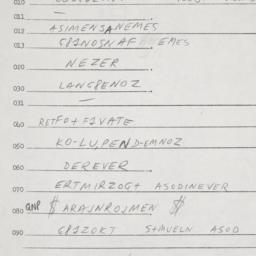 010
011
012 ASIMENSANEMES
013 G81NOSNAF EMES
020 NEZER
030 LANG8ENOZ
031 —
060 RETFO+ F1VATE
050 KO-LUPEND-EMNOZ
060 DEREVER
070 ERTMIRZOG+ ASODINEVER
080 QNP $ ARASNROJMEN $
090 G81ZOKT S+MUELN ASOD